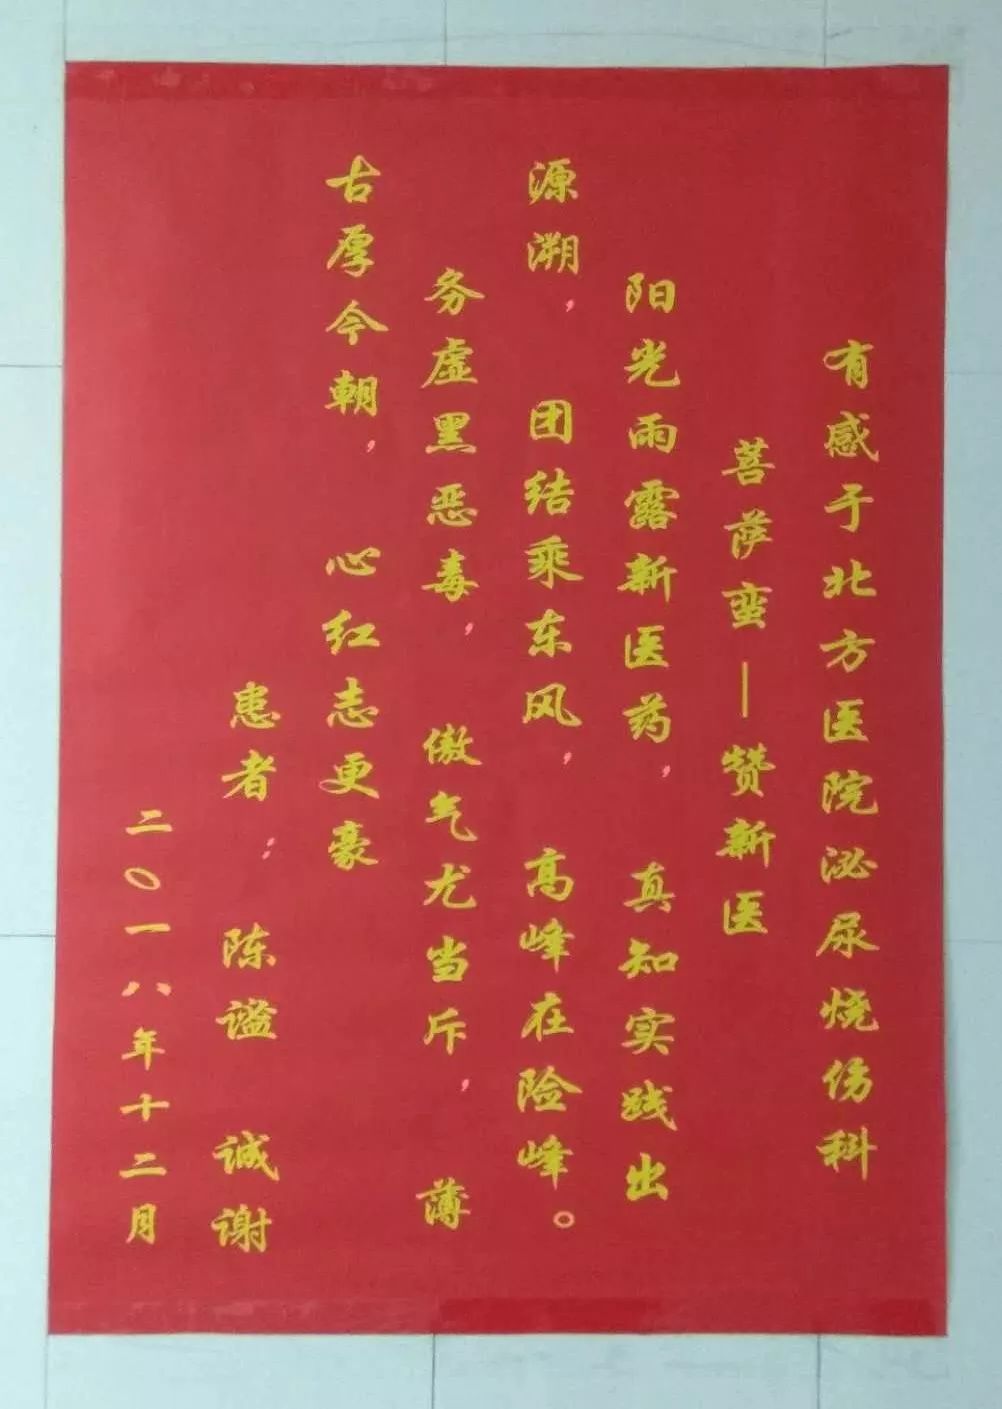 有感于北方医院泌尿烧伤科
菩萨蛮—赞新医
阳光雨露新医药，真知实践出
源溯，团结乘东风，高峰在险峰。
务虚黑恶毒，傲气尤当斥，薄
古厚今朝，心红志更豪
患者：陈谧 诚谢
二〇一八年十二月